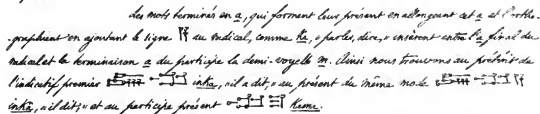 Les mots terminés en a, qui forment leur présent en allongeant cet a et l'ortho-
-graphient en ajoutant le signe 𒀀 au radical, comme Ka, « parler, dire, » insèrent entre l'a final du
radical et la terminaison a du participe la demi-voyelle m. Ainsi nous trouvons au prétérit de
l'indicatif premier inka, « il a dit, » au présent du même mode
inkā, « il dit, » et au participe présent Kama.